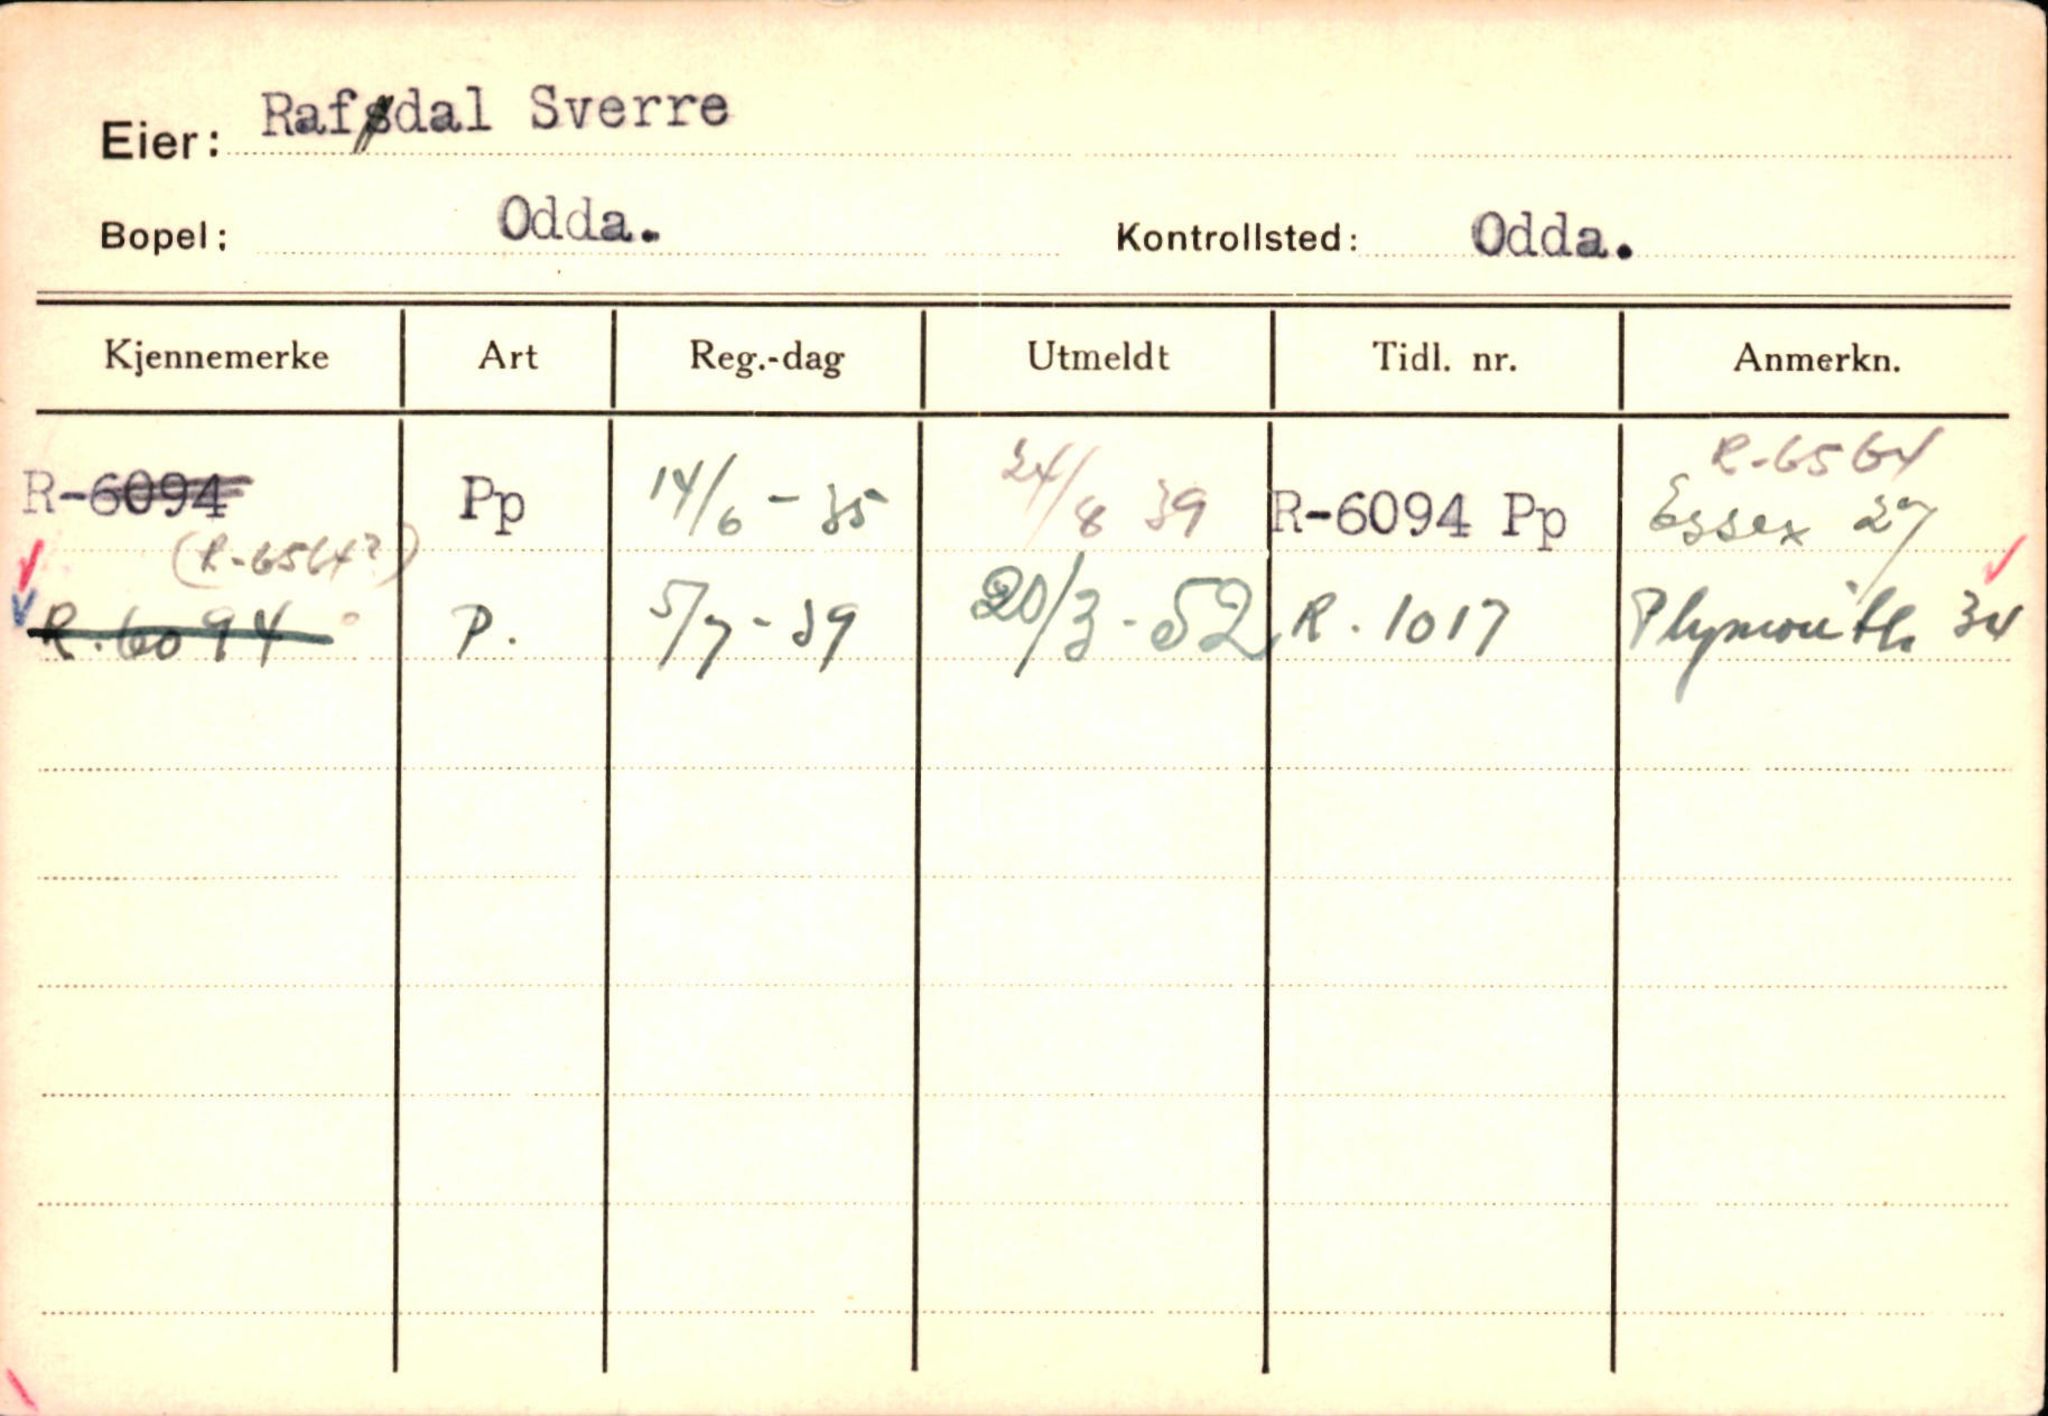 Eier: Rafdal Sverre
Bopel: Odda. Kontrollsted: Odda.
Kjennemerke Art Reg.-dag Utmeldt Tidl. nr. Anmerkn.
R-6564
R-6094 Pp 14/6 - 35 24/8 39 R-6094 Pp Essex 27
(R-6564?)
R.6094 P. 5/7-39 20/3-52 R.1017 Plymouth 34